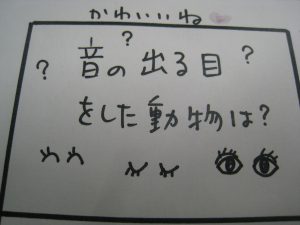 かわいいね
?
音の出る目
? ?
をした動物は?